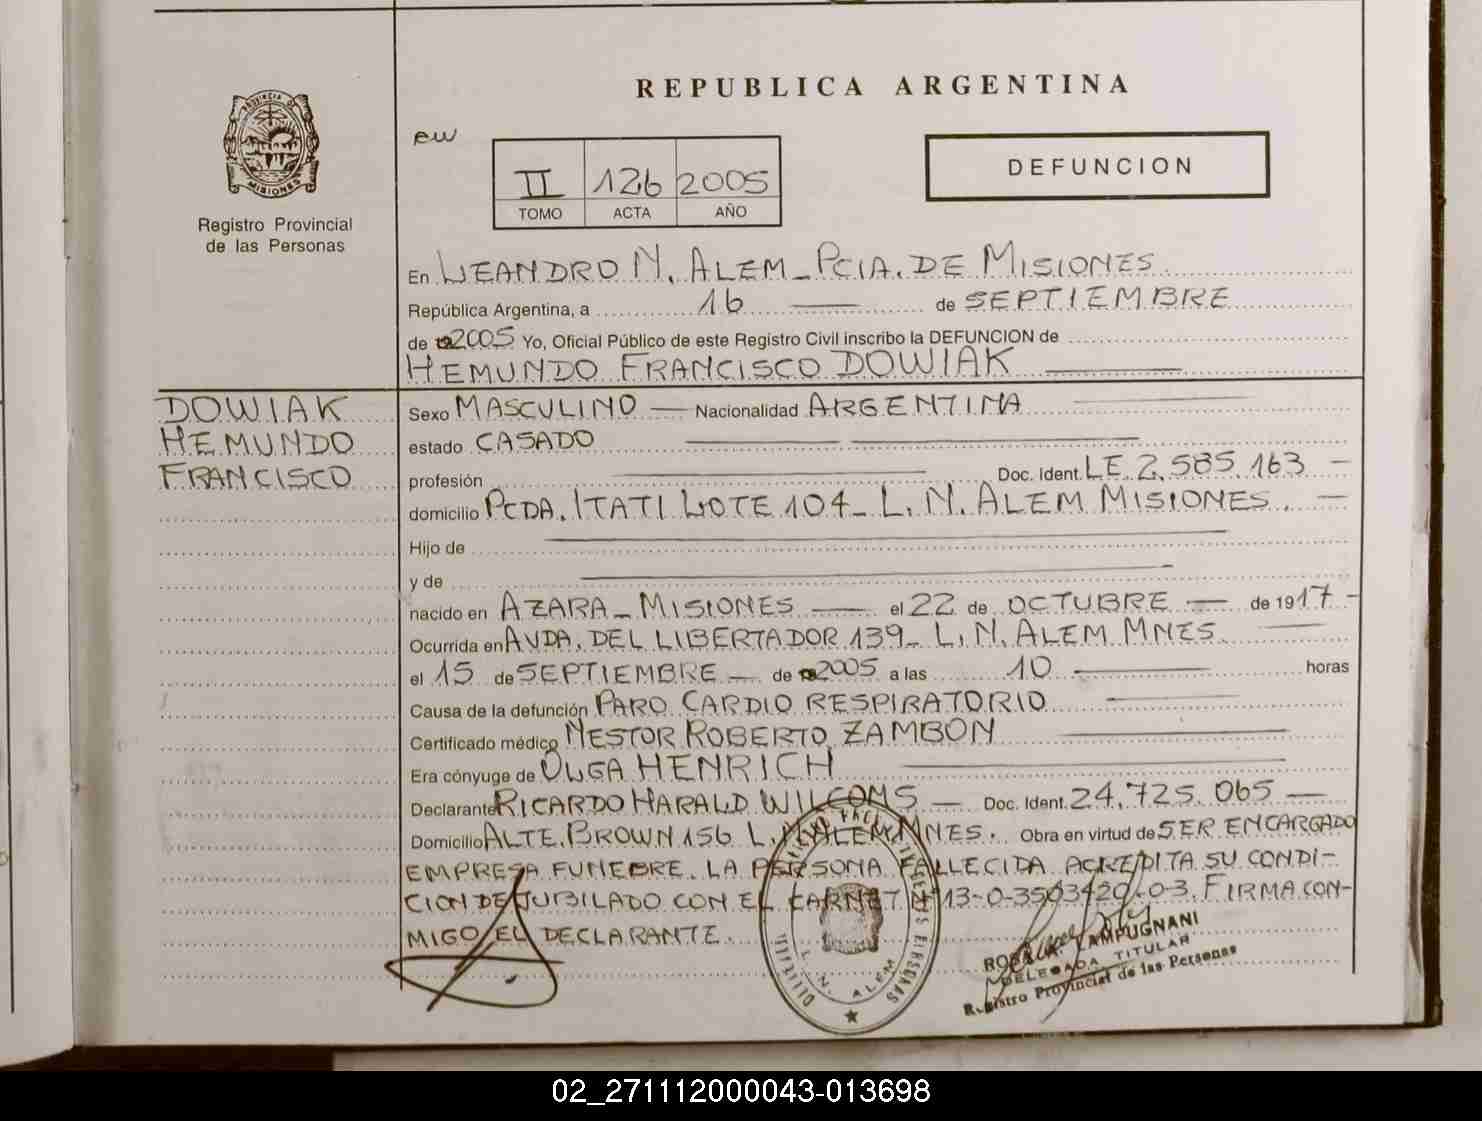 REPUBLICA ARGENTINA
PROVINCIA DE
MISIONES
Registro Provincial
de las Personas
II 126 2005
TOMO ACTA AÑO
DEFUNCION
En LEANDRO N. ALEM_PCIA. DE MISIONES
República Argentina, a 16 de SEPTIEMBRE
de 2005 Yo, Oficial Público de este Registro Civil inscribo la DEFUNCION de
HEMUNDO FRANCISCO DOWIAK
DOWIAK
HEMUNDO
FRANCISCO
Sexo MASCULINO — Nacionalidad ARGENTINA
estado CASADO
profesión Doc. Ident. LE 2.585.163 —
domicilio PCDA. ITATI LOTE 104_ L. N. ALEM MISIONES. —
Hijo de
y de
nacido en AZARA_MISIONES — el 22 de OCTUBRE — de 1917-
Ocurrida en AVDA. DEL LIBERTADOR 139_ L. N. ALEM MNES
el 15 de SEPTIEMBRE — de 2005 a las 10 horas
Causa de la defunción PARO CARDIO RESPIRATORIO
Certificado médico NESTOR ROBERTO ZAMBON
Era cónyuge de OLGA HENRICH
Declarante RICARDO HARALD WILCOMS — Doc. Ident. 24.725.065 —
Domicilio ALTE. BROWN 156 L. N. ALEM MNES. Obra en virtud de SER ENCARGADO
EMPRESA FUNEBRE. LA PERSONA FALLECIDA ACREDITA SU CONDI-
CION DE JUBILADO CON EL CARNET Nº 13-0-3503420-0-3. FIRMA CON-
MIGO EL DECLARANTE.
L. N. ALEM
ROSA A. LAMPUGNANI
DELEGADA TITULAR
Registro Provincial de las Personas
02_271112000043-013698